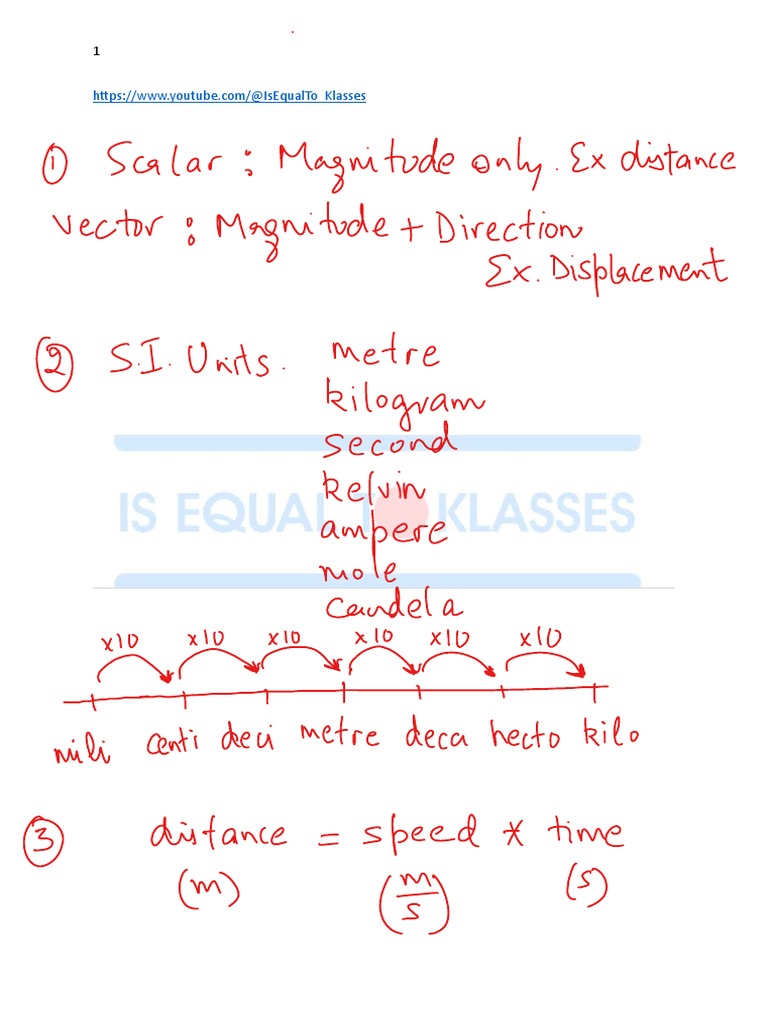 1
https://www.youtube.com/@IsEqualTo_Klasses
① Scalar : Magnitude only. Ex distance
Vector : Magnitude + Direction
Ex. Displacement
② S.I. Units. metre
kilogram
second
kelvin
IS EQUAL TO KLASSES
ampere
mole
candela
x10 x10 x10 x10 x10 x10
mili centi deci metre deca hecto kilo
③ distance = speed * time
(m) (m/s) (s)